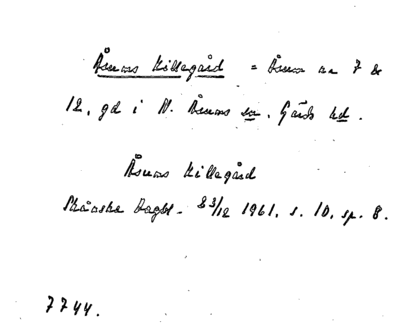 Åsums Killegård = Åsum nr 7 &
12, gd i N. Åsums sn, Gärds hd.
Åsums Killegård
Skånska Dagbl. 23/12 1961, s. 10, sp. 8.
7744.